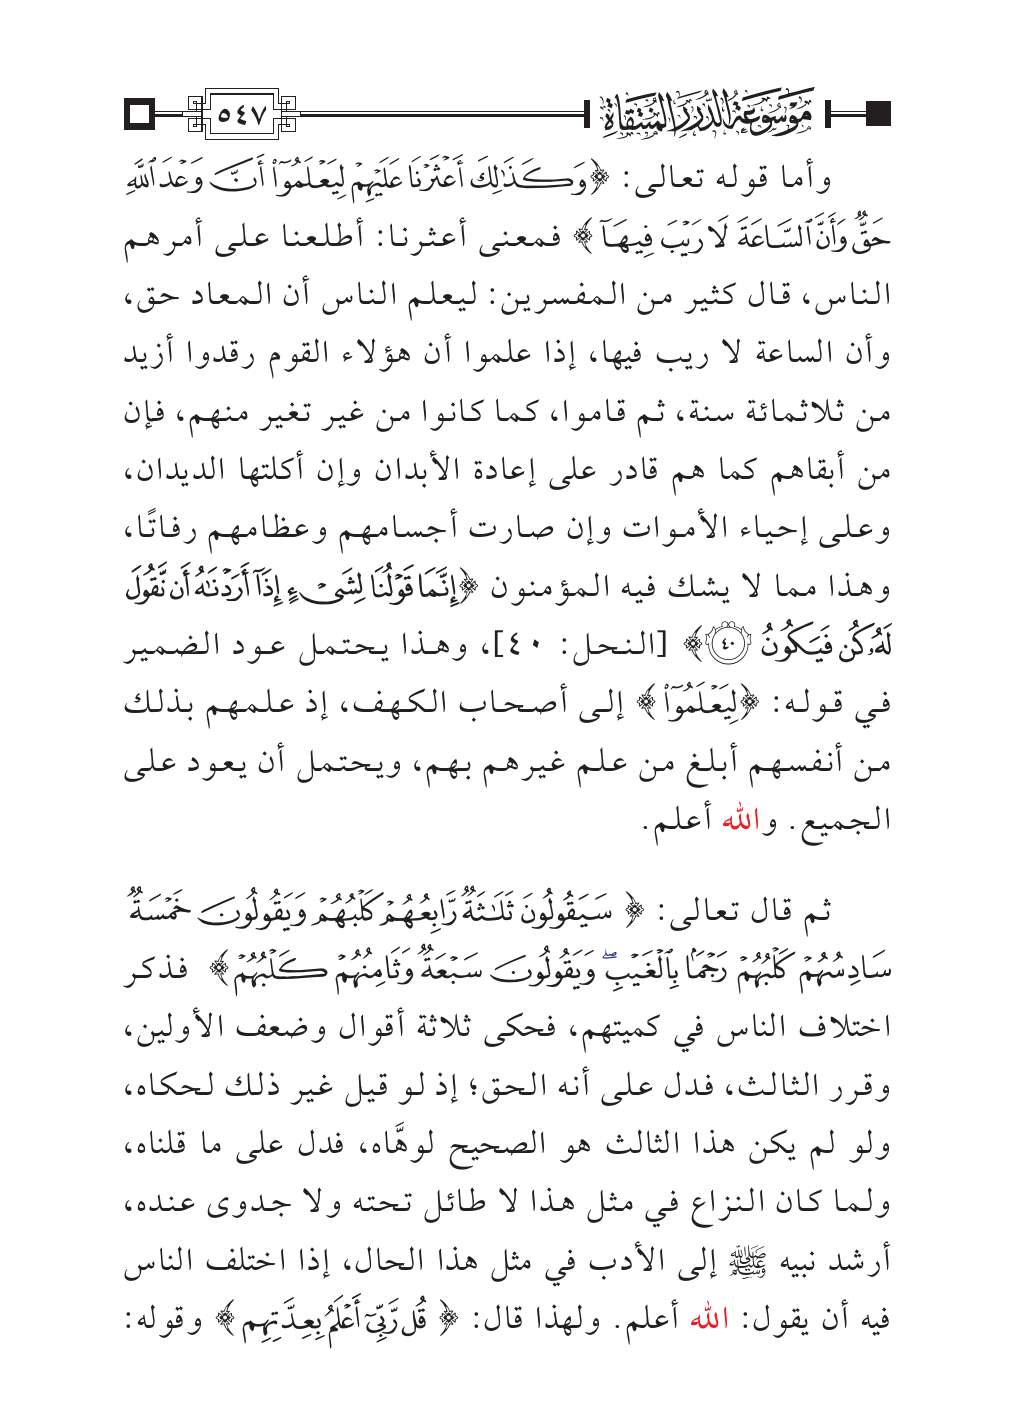 موسوعة الدرر المنتقاة ٥٤٧
وأما قوله تعالى: ﴿وَكَذَٰلِكَ أَعۡثَرۡنَا عَلَيۡهِمۡ لِيَعۡلَمُوٓاْ أَنَّ وَعۡدَ ٱللَّهِ
حَقّٞ وَأَنَّ ٱلسَّاعَةَ لَا رَيۡبَ فِيهَآ﴾ فمعنى أعثرنا: أطلعنا على أمرهم
الناس، قال كثير من المفسرين: ليعلم الناس أن المعاد حق،
وأن الساعة لا ريب فيها، إذا علموا أن هؤلاء القوم رقدوا أزيد
من ثلاثمائة سنة، ثم قاموا، كما كانوا من غير تغير منهم، فإن
من أبقاهم كما هم قادر على إعادة الأبدان وإن أكلتها الديدان،
وعلى إحياء الأموات وإن صارت أجسامهم وعظامهم رفاتًا،
وهذا مما لا يشك فيه المؤمنون ﴿إِنَّمَا قَوۡلُنَا لِشَيۡءٍ إِذَآ أَرَدۡنَٰهُ أَن نَّقُولَ
لَهُۥ كُن فَيَكُونُ ٤٠﴾ [النحل: ٤٠]، وهذا يحتمل عود الضمير
في قوله: ﴿لِيَعۡلَمُوٓاْ﴾ إلى أصحاب الكهف، إذ علمهم بذلك
من أنفسهم أبلغ من علم غيرهم بهم، ويحتمل أن يعود على
الجميع. والله أعلم.
ثم قال تعالى: ﴿سَيَقُولُونَ ثَلَٰثَةٞ رَّابِعُهُمۡ كَلۡبُهُمۡ وَيَقُولُونَ خَمۡسَةٞ
سَادِسُهُمۡ كَلۡبُهُمۡ رَجۡمَۢا بِٱلۡغَيۡبِۖ وَيَقُولُونَ سَبۡعَةٞ وَثَامِنُهُمۡ كَلۡبُهُمۡ﴾ فذكر
اختلاف الناس في كميتهم، فحكى ثلاثة أقوال وضعف الأولين،
وقرر الثالث، فدل على أنه الحق؛ إذ لو قيل غير ذلك لحكاه،
ولو لم يكن هذا الثالث هو الصحيح لوهَّاه، فدل على ما قلناه،
ولما كان النزاع في مثل هذا لا طائل تحته ولا جدوى عنده،
أرشد نبيه ﷺ إلى الأدب في مثل هذا الحال، إذا اختلف الناس
فيه أن يقول: الله أعلم. ولهذا قال: ﴿قُل رَّبِّيٓ أَعۡلَمُ بِعِدَّتِهِم﴾ وقوله: